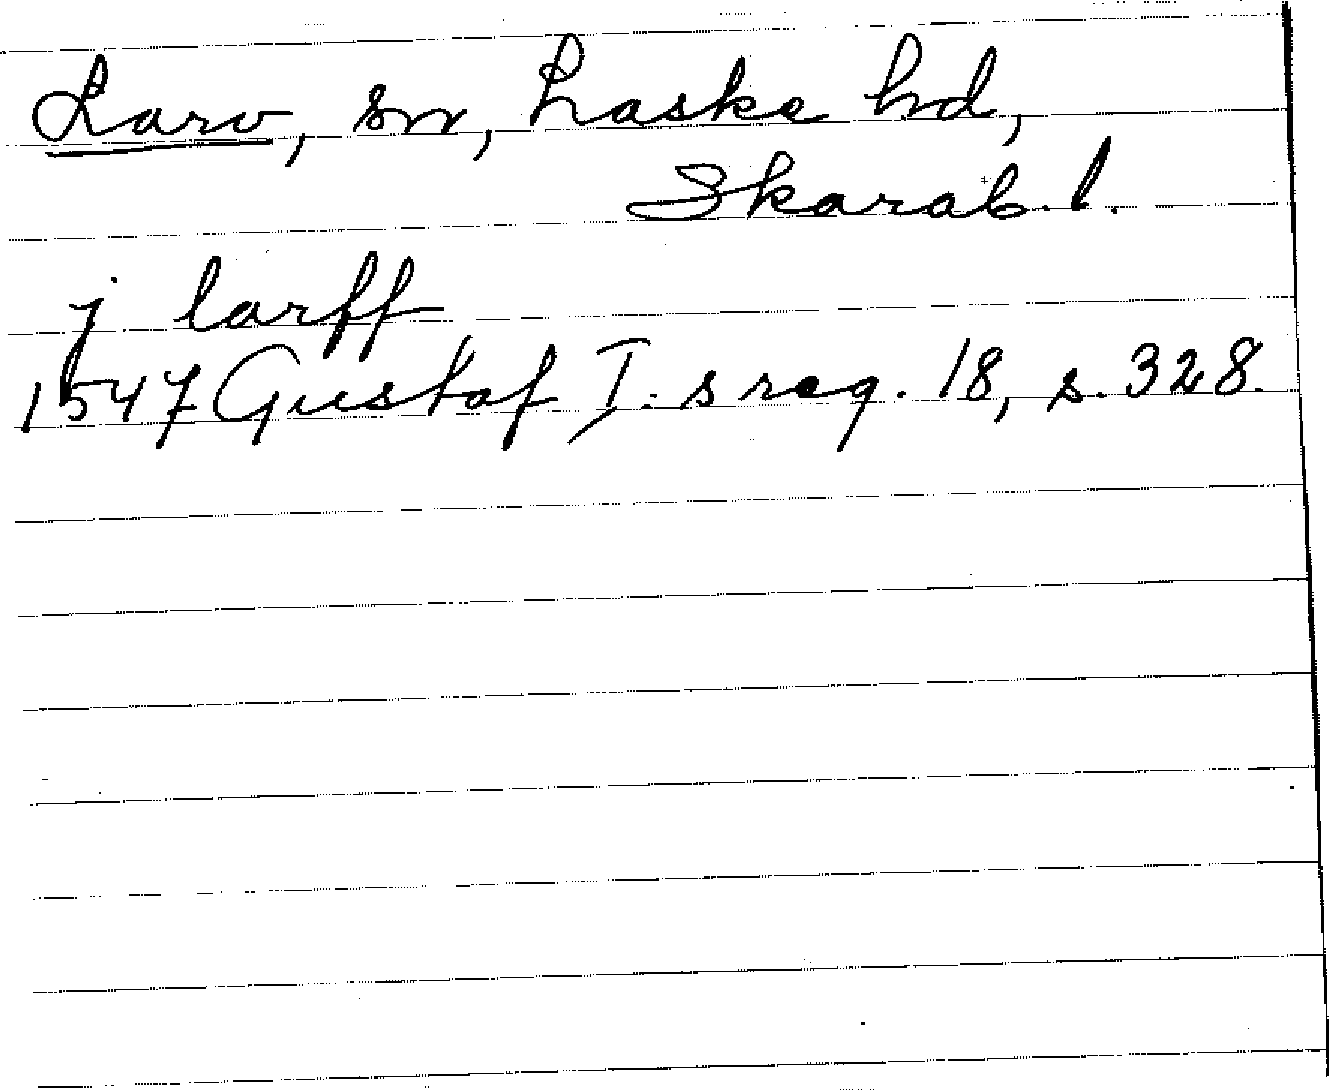 Larv, sn, Laske hd,
Skarab. l.
j larff
1547 Gustaf I:s reg. 18, s. 328.